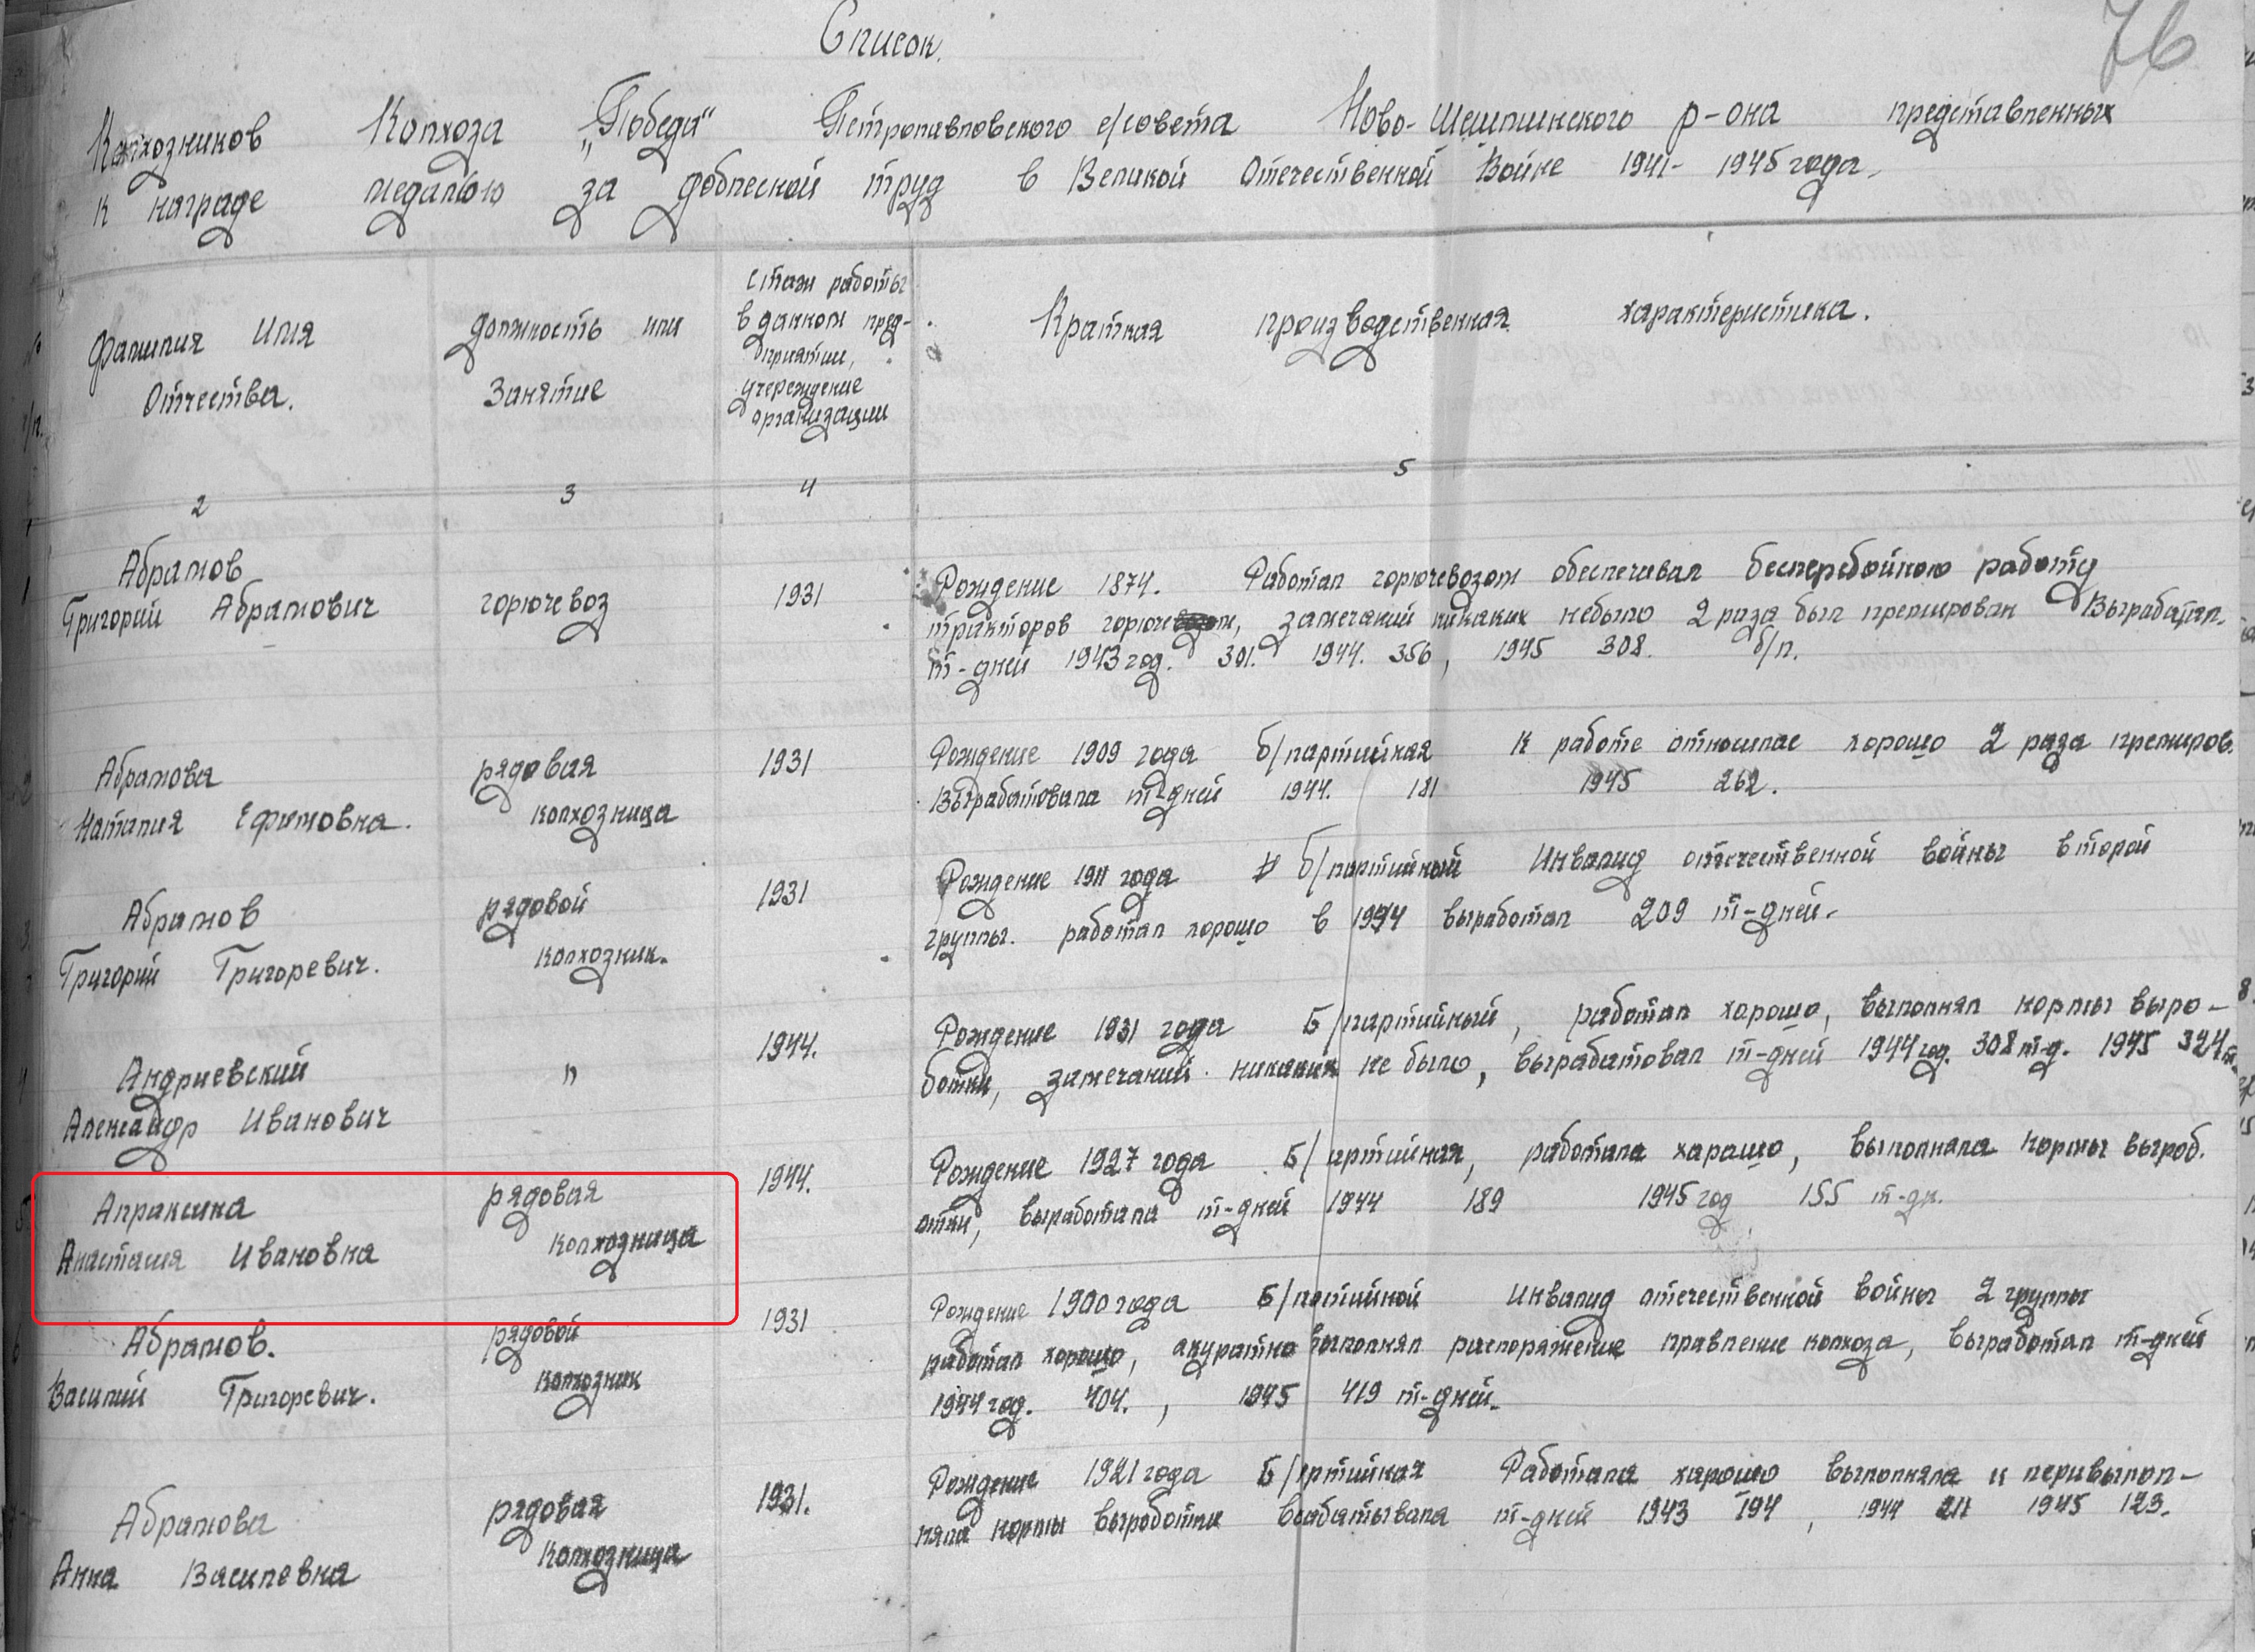 76
Список.
Колхозников Колхоза „Победа" Петропавловского с/совета Ново-Шешминского р-она представленных
к награде медалью за доблеской труд в Великой Отечественной Войне 1941- 1945 года.
Фамилия Имя
Отчества.
должность или
Занятие
Стаж работы
в данном пред-
приятии,
учереждение
организации
Краткая производственная характеристика.
2 3 4 5
1 Абрамов
Григорий Абрамович
горючевоз
1931
Рождение 1874. Работал горючевозом обеспечивал бесперебойною работу
тракторов горючем, замечаний никаких небыло 2 раза был премирован Выработал.
т-дней 1943 год. 301. 1944. 356, 1945 308. б/п.
2 Абрамова
Наталия Ефимовна.
рядовая
колхозница
1931
Рождение 1909 года б/партийная к работе относилас хорошо 2 раза премиров.
Выработовала т-дней 1944. 181 1945 262.
3 Абрамов
Григорий Григоревич.
рядовой
колхозник.
1931
Рождение 1911 года б/партийный Инвалид отечественной войны второй
группы. работал хорошо в 1944 выработал 209 т-дней.
4 Андриевский
Александр Иванович
"
1944.
Рождение 1931 года Б/партийный, работал хорошо, выполнял нормы выро-
ботки, замечаний никаких не было, вырабатовал т-дней 1944 год. 308 т-д. 1945 324 т.
5 Апраксина
Анастасия Ивановна
рядовая
колхозница
1944.
Рождение 1927 года Б/артийная, работала харашо, выполнала нормы выроб.
отки, выработала т-дней 1944 189 1945 год 155 т-дн.
6 Абрамов.
Василий Григоревич.
рядовой
колхозник
1931
Рождение 1900 года Б/патийной Инвалид отечественной войны 2 группы
работал хорошо, акуратно выполнял распоряжение правление колхоза, выработал т-дней
1944 год. 404., 1945 419 т-дней.
Абрамова
Анна Василевна
рядовая
колхозница
1931.
Рождение 1921 года Б/ртийная Работала харошо выполняла и перивыпол-
няла нормы выработки т-дней 1943 194, 1944 1945 123.